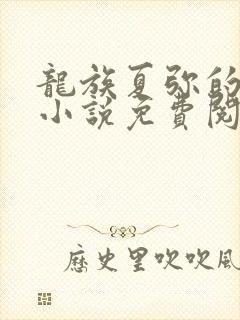 龍族夏弥的
小說免費閱
歷史里吹吹風